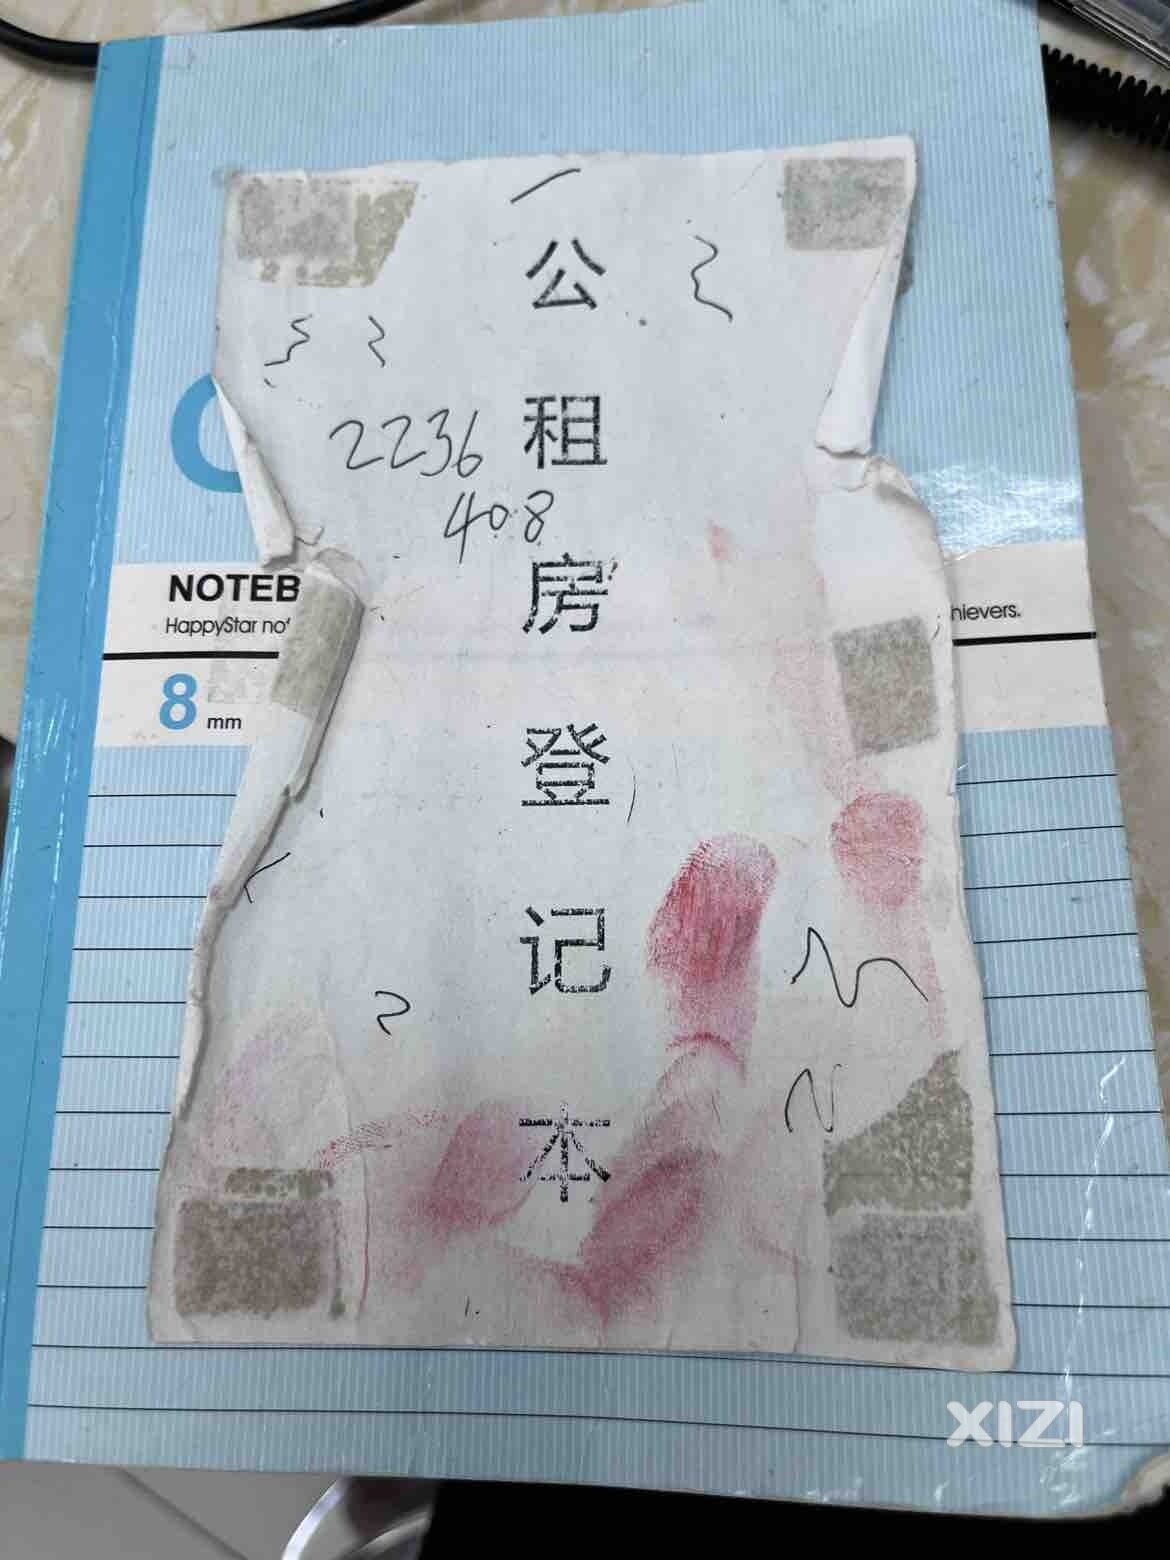 公
租
2236
408
房
登
记
本
NOTEB
HappyStar not
hievers.
8 mm
XIZI